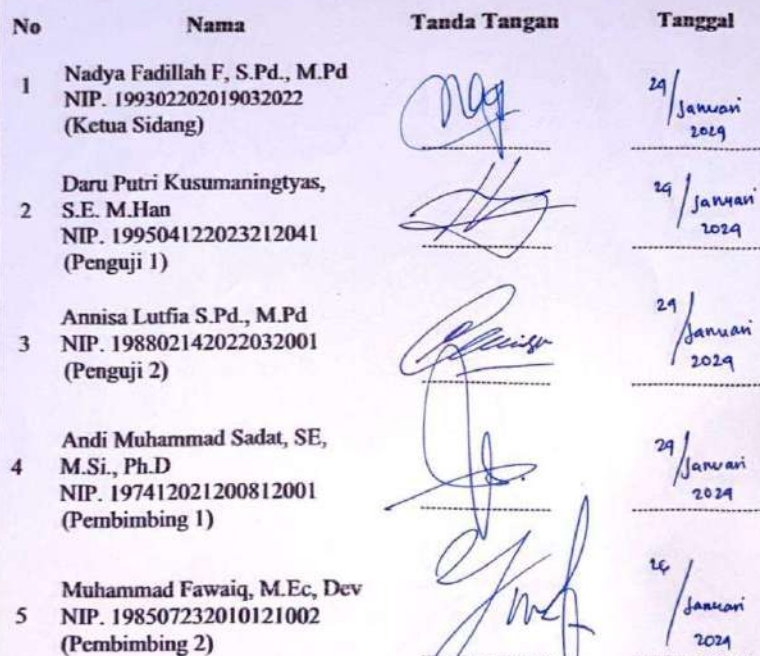 No Nama Tanda Tangan Tanggal
1 Nadya Fadillah F, S.Pd., M.Pd
NIP. 199302202019032022
(Ketua Sidang)
29/Januari
2024
Daru Putri Kusumaningtyas,
2 S.E. M.Han
NIP. 199504122023212041
(Penguji 1)
29/Januari
2024
Annisa Lutfia S.Pd., M.Pd
3 NIP. 198802142022032001
(Penguji 2)
29/Januari
2024
Andi Muhammad Sadat, SE,
4 M.Si., Ph.D
NIP. 197412021200812001
(Pembimbing 1)
29/Januari
2024
Muhammad Fawaiq, M.Ec, Dev
5 NIP. 198507232010121002
(Pembimbing 2)
/Januari
2024